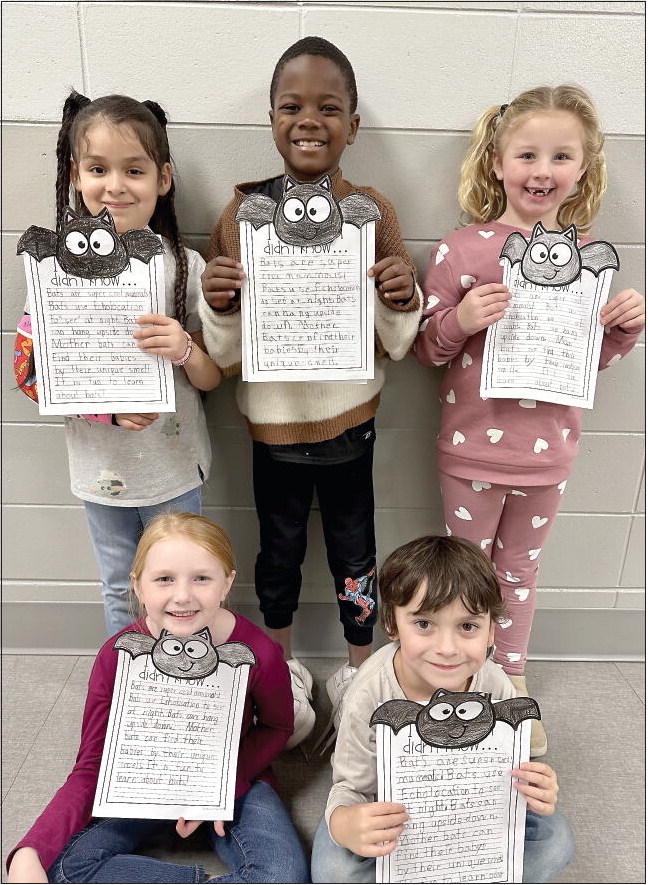 didn't know...
Bats are super cool mammals!
Bats use Echolocation
to see at night. Bats
can hang upside down.
Mother bats can
Find their babies
by there unique smell.
It is fun to learn
about bats!
didn't know...
Bats are super
cool mammals!
Bats use Echolocation
to see at night. Bats
can hang upside
down. Mother
Bats can find their
babies by their
unique smell.
didn't know...
Bats are super
at night.
Bats can hang
upside down.
find their
babies by their unique
smell.
about bats
didn't know...
Bats are super cool mammals!
Bats use Echolocation to see
at night. Bats can hang
upside down. Mother
bats can find their
babies by their unique
smell. It is fun to
learn about bats!
didn't know...
Bats are super cool
mammals. Bats use
Echolocation to see
at night. Bats can
hang upside down.
Mother bats can
find their babys
by their unique smell
learn over